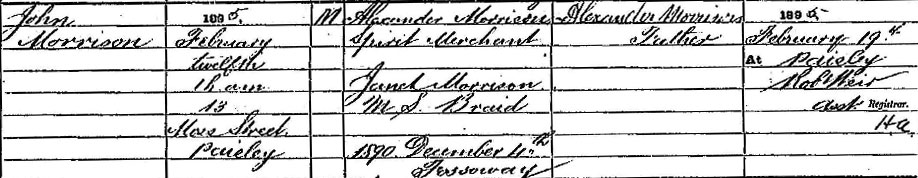 John 1895. M Alexander Morrison Alexander Morrison 1895.
Morrison February Spirit Merchant Father February 19th
twelfth At Paisley
1h am Janet Morrison Robt Weir
13 M.S. Braid Asst Registrar.
Moss Street H.A.
Paisley 1890. December 4th
Fossoway